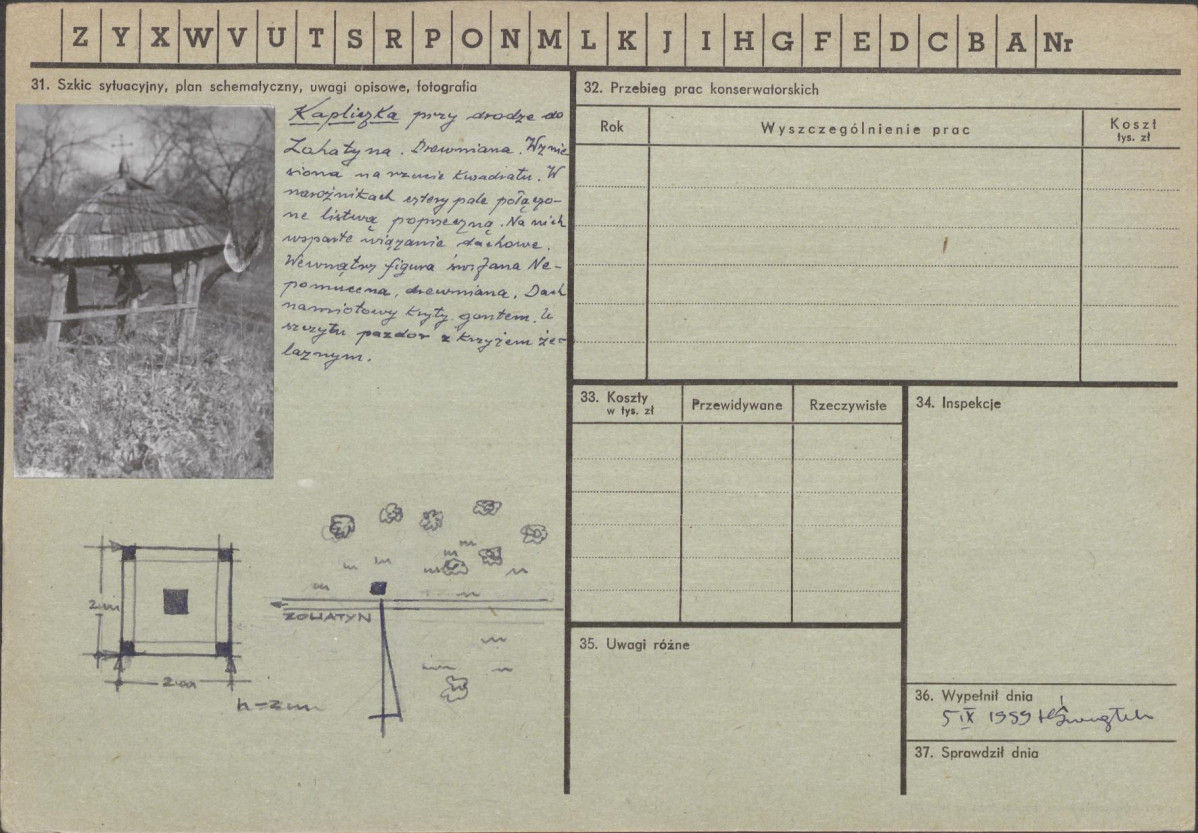 Z Y X W V U T S R P O N M L K J I H G F E D C B A Nr
31. Szkic sytuacyjny, plan schematyczny, uwagi opisowe, fotografia
Kapliczka przy drodze do
Zohatyna. Drewniana. Wznie
siona na rzucie kwadratu. W
narożnikach cztery pale połączo-
ne listwą poprzeczną. Na nich
wsparte wiązanie dachowe.
Wewnątrz figura św. Jana Ne-
pomucena, drewniana. Dach
namiotowy kryty gontem. U
szczytu pazdór z krzyżem że-
laznym.
2m
2m
h=2m
ZOHATYN
32. Przebieg prac konserwatorskich
Rok
Wyszczególnienie prac
Koszt
tys. zł
33. Koszty
w tys. zł
Przewidywane
Rzeczywiste
34. Inspekcje
35. Uwagi różne
36. Wypełnił dnia
5 IX 1959
37. Sprawdził dnia